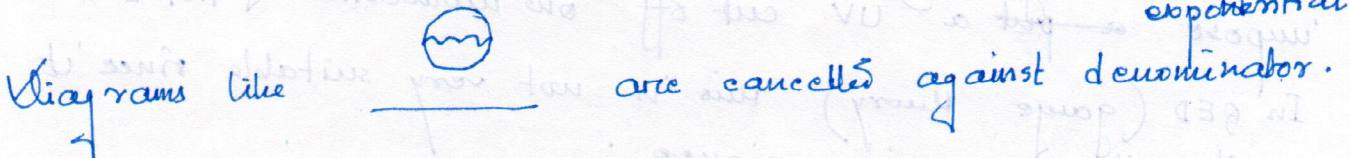 exponential
Diagrams like are cancelled against denominator.